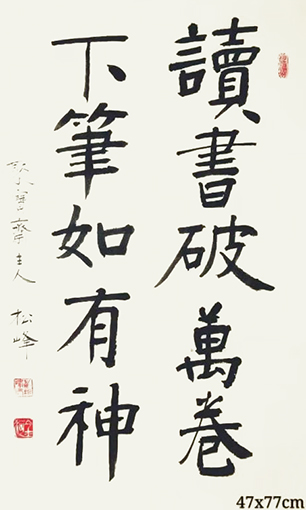 讀書破萬卷
下筆如有神
齋主人 松峰
47x77cm